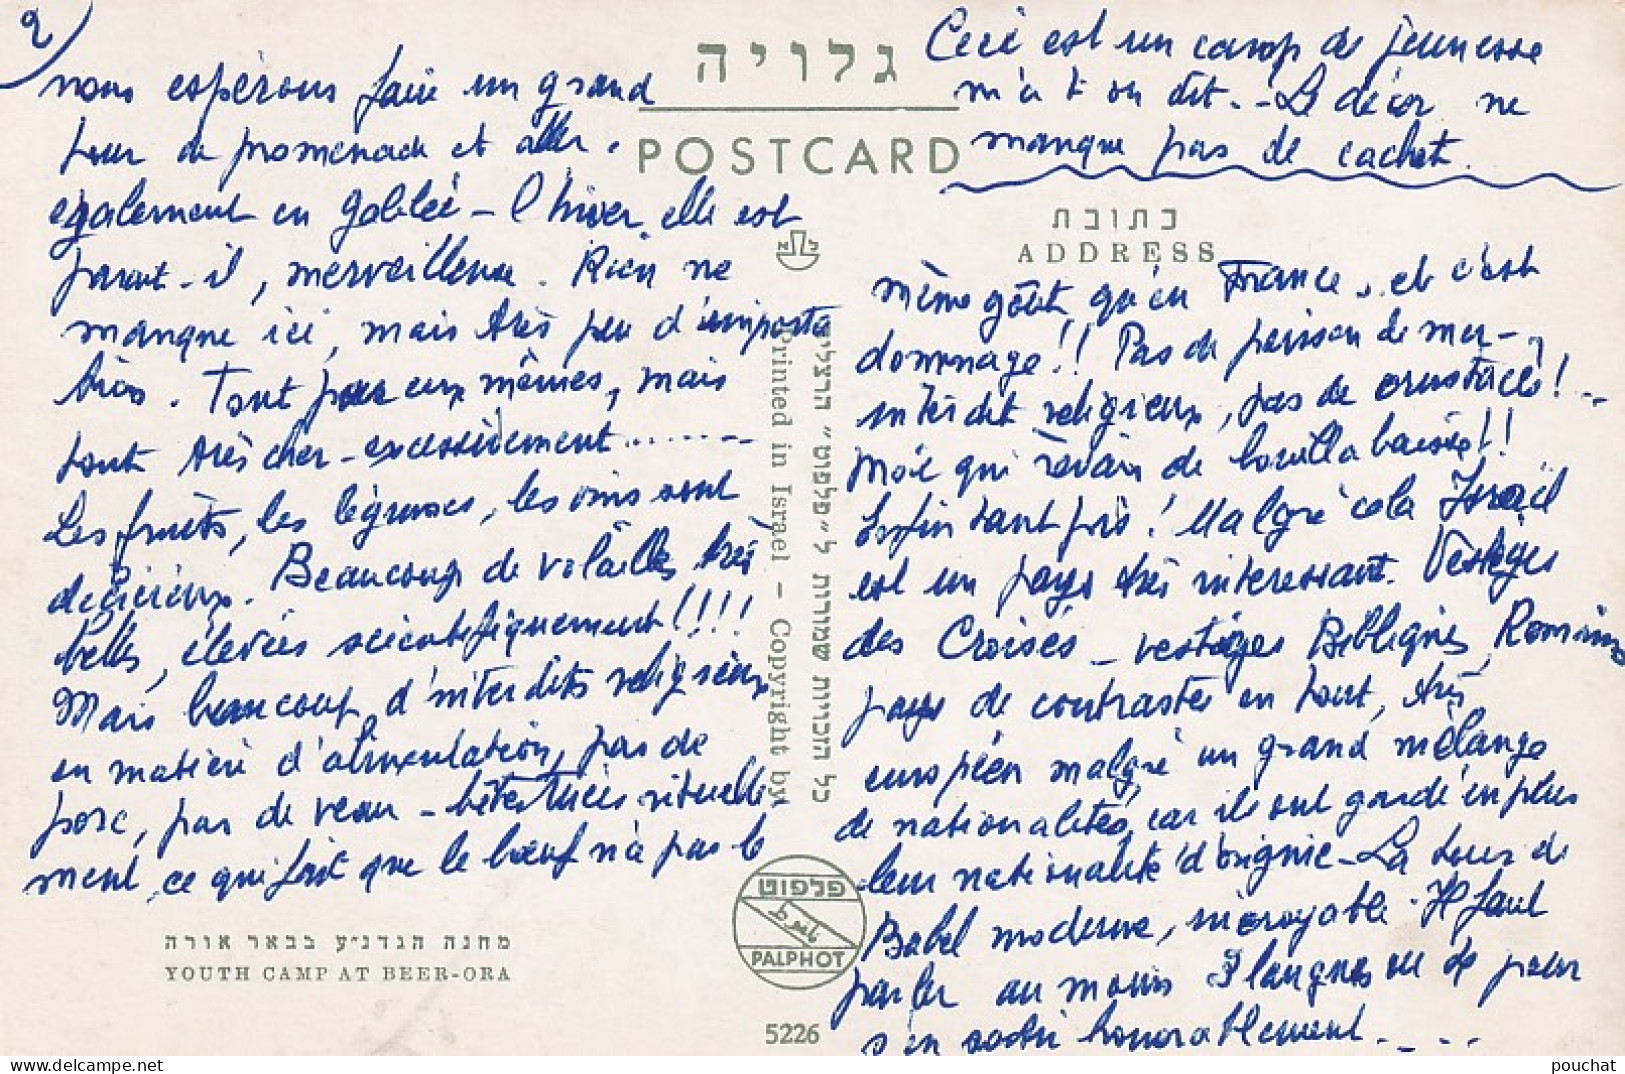 2)
nous espérons faire un grand
tour de promenade et aller
également en Galilée - l'hiver elle est
parait-il, merveilleuse. Rien ne
manque ici, mais très peu d'importa
tion. Tout par eux mêmes, mais
tout très cher - excessivement .......
Les fruits, les légumes, les vins sont
délicieux. Beaucoup de volailles très
belles, élevées scientifiquement !!!!
Mais beaucoup d'interdits religieux
en matière d'alimentation, pas de
porc, pas de veau - bêtes tuées rituelle-
ment, ce qui fait que le bœuf n'a pas le
מחנה הגדנ״ע בבאר אורה
YOUTH CAMP AT BEER-ORA
גלויה
POSTCARD
Printed in Israel - Copyright by
כל הזכויות שמורות ל„פלפוט" הרצליה
פלפוט
PALPHOT
5226
Ceci est un camp de jeunesse
m'a t on dit.. Le décor ne
manque pas de cachet.
כתובת
ADDRESS
même goût qu'en France, et c'est
dommage!! Pas de poisson de mer -
interdit religieux, pas de crustacés!..
Moi qui rêvais de bouillabaisse!!
Enfin tant pis! Malgré cela Israël
est un pays très interessant. Vestiges
des Croisés - vestiges Bibliques, Romains
pays de contrastes en tout, très
européen malgré un grand mélange
de nationalités, car ils ont gardé en plus
leur nationalité d'origine - La tour de
Babel moderne, incroyable. Il faut
parler au moins 3 langues ou 4 pour
s'en sortir honorablement.....
pouchat